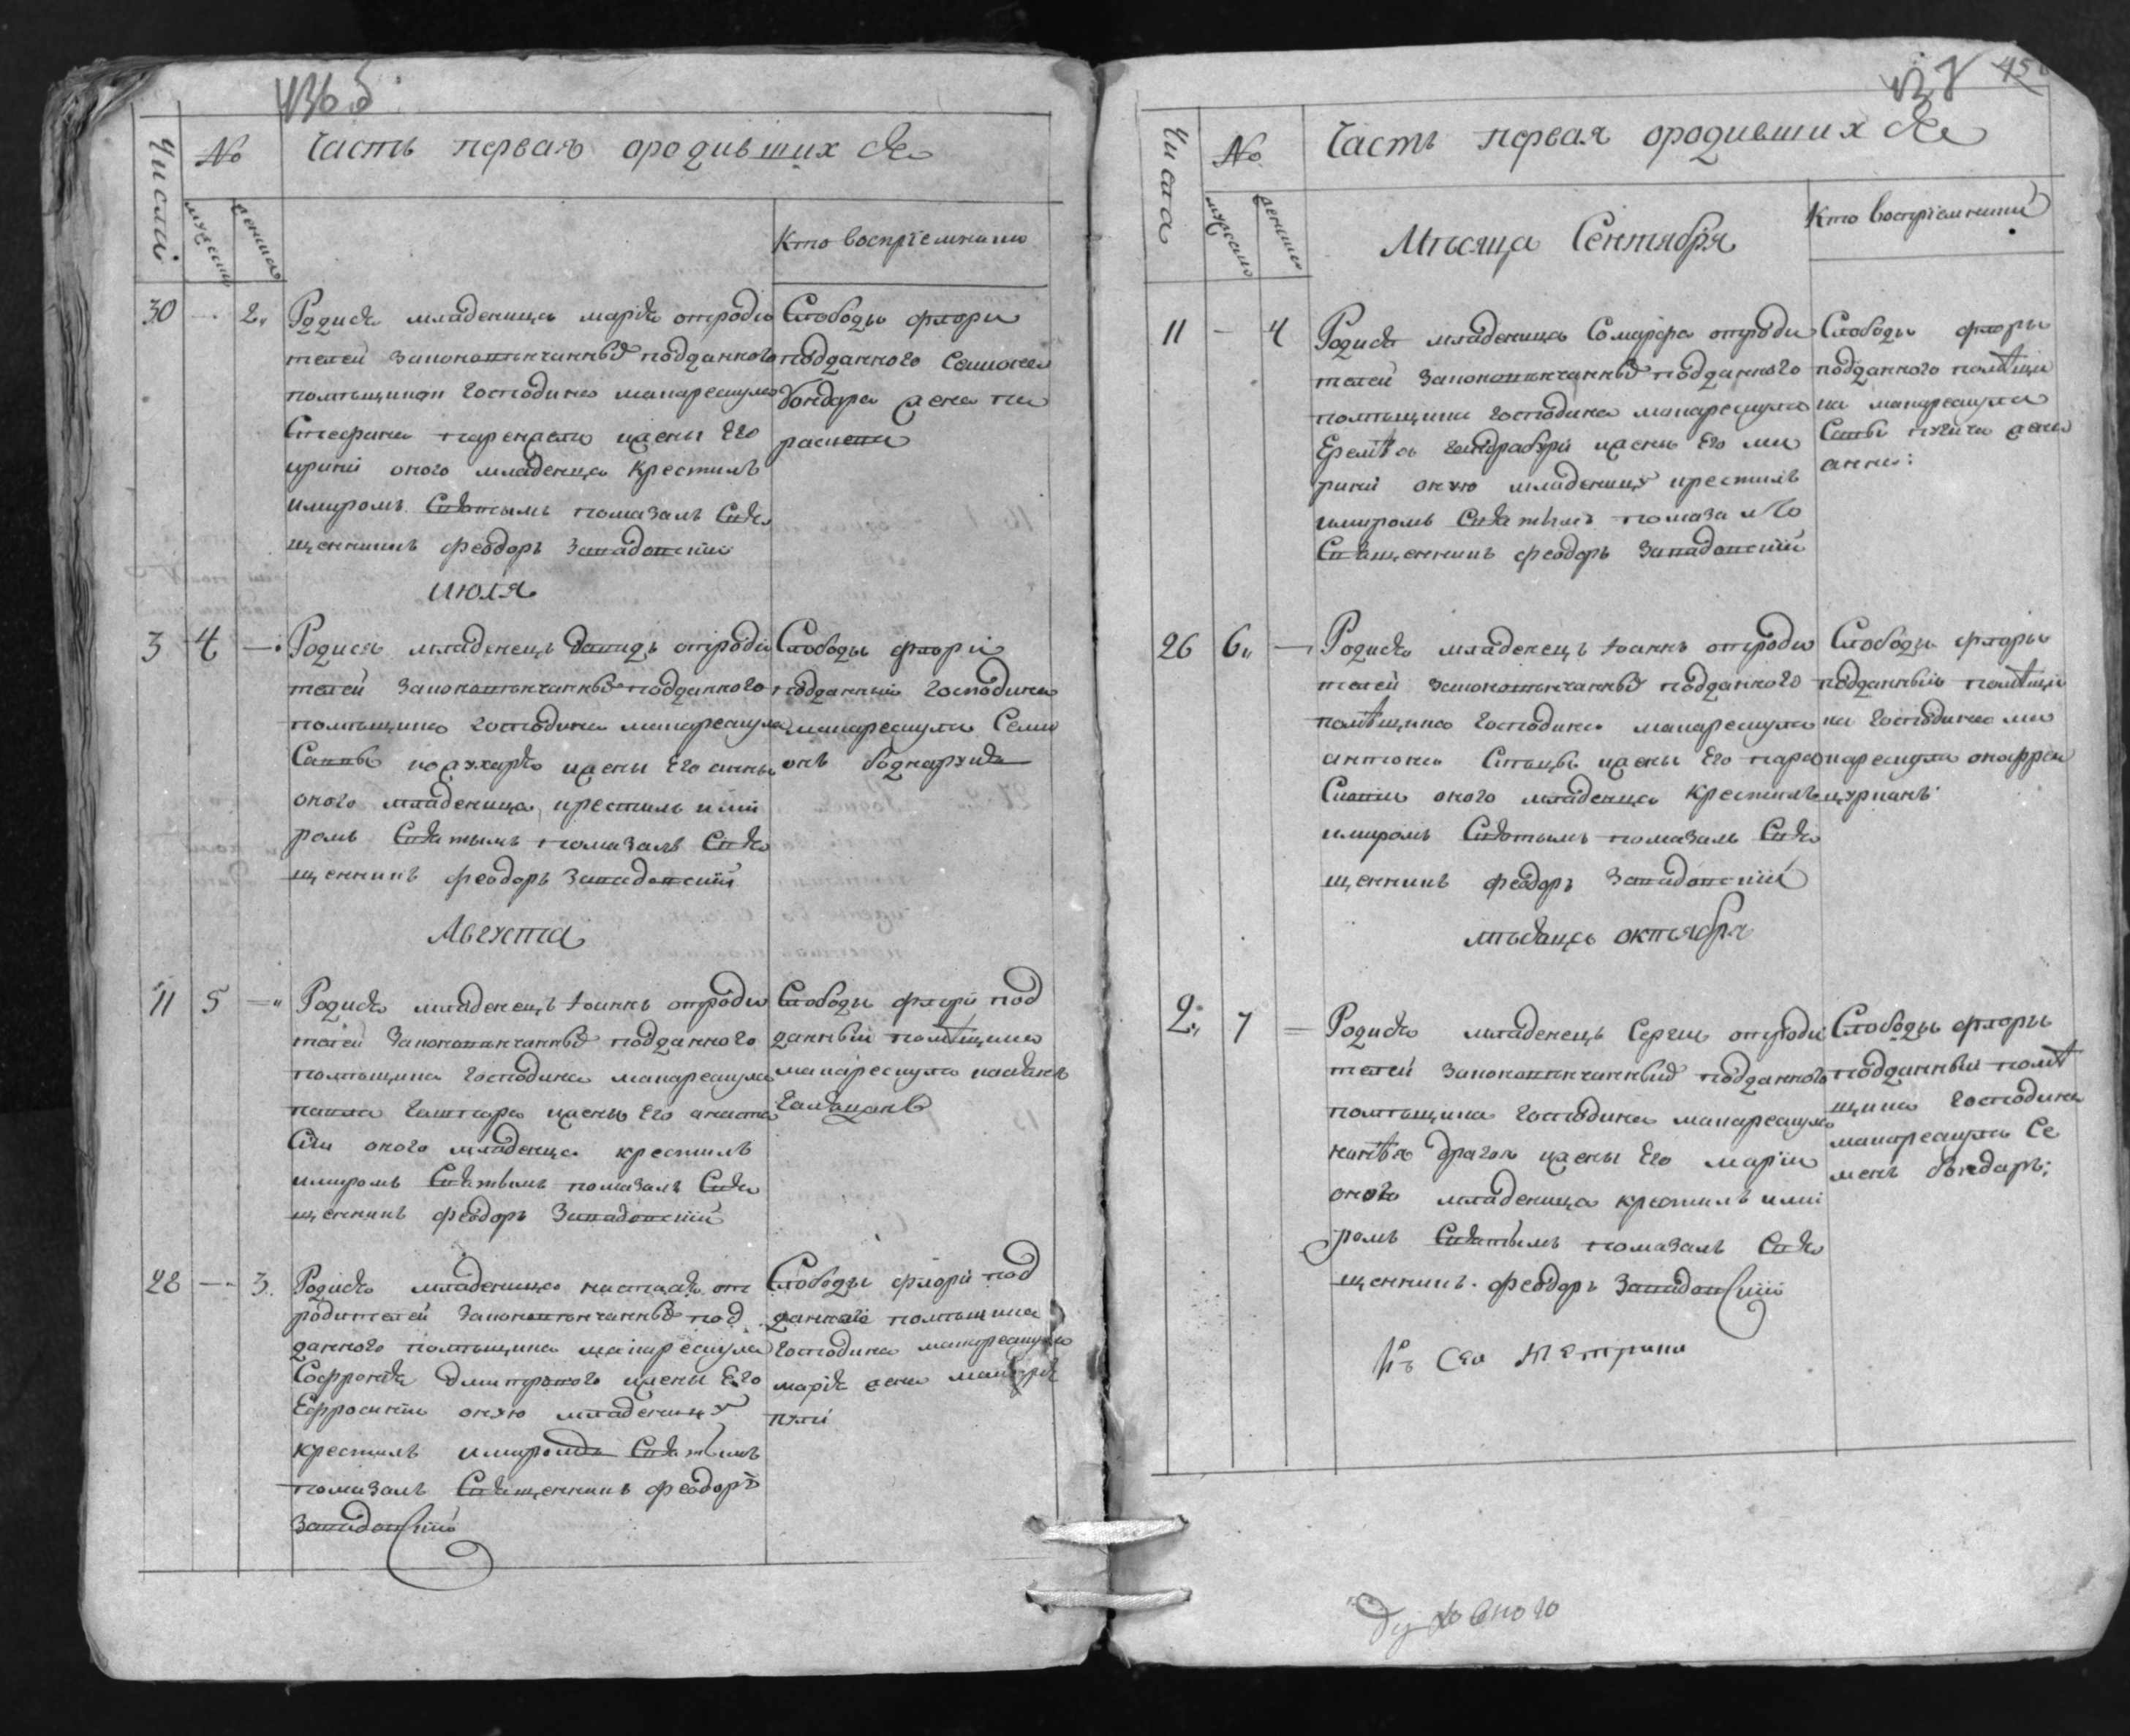 436 б
Числа
№
Часть первая ородившихся
мужеска
женска
Кто восприемники
30 — 2
Родися младеница марїя отроди
телей законовѣнчанныхъ подданного
помѣщика господина макарескула
Стефана жены Его
ирини оного младенца крестилъ
имиромъ Святымъ помазалъ Свя
щенникъ феодоръ Западовскїй
Слободы флори
подданного Семиона
бондара жена па
раскева
июля
3 4 —
Родися младенецъ давидъ отроди
телей законовѣнчанныхъ подданного
помѣщика господина макарескула
Саввы жены Его анны
оного младенца крестилъ ими
ромъ Святымъ помазалъ Свя
щенникъ феодоръ Западовскїй
Слободы флорї
подданный господина
макарескула Сими
онъ боднаръ
Августа
11 5 —
Родися младенецъ Іоаннъ отроди
телей законовѣнчанныхъ подданного
помѣщика господина макарескула
павла жены Его анаста
Сїи оного младенца крестилъ
имиромъ Святымъ помазалъ Свя
щенникъ феодоръ Западовскїй
Слободы флорї под
данный помѣщика
макарескула
28 — 3
Родися младеница настасїя от
родителей законовѣнчанныхъ под
данного помѣщика макарескула
Софронїя жены Его
Ефросинїи оную младеницу
крестилъ имиромъ Святымъ
помазалъ Священникъ феодоръ
Западовскїй
Слободы флорї под
данного помѣщика
господина макарескула
марїя жена
437
45
Числа
№
Часть первая ородившихся
мужеска
женска
Мѣсяца Сентября
Кто восприемники
11 — 4
Родися младеница отроди
телей законовѣнчанныхъ подданного
помѣщика господина макарескула
Еремѣя жены Его ма
рини оную младеницу крестилъ
имиромъ Святымъ помаза ло
Священникъ феодоръ Западовскїй
Слободы флоры
подданного помѣщи
ка макарескула
Савы жена
анна:
26 6 —
Родися младенецъ Іоаннъ отроди
телей законовѣнчанныхъ подданного
помѣщика господина макарескула
антона жены Его пара
Скевїи оного младенца крестилъ
имиромъ Святымъ помазалъ Свя
щенникъ феодоръ Западовскїй
Слободы флоры
подданный помѣщи
ка господина ма
карескула онофрей
цурканъ
мѣсяца октября
2 7 —
Родися младенецъ Сергии отроди
телей законовѣнчанныхъ подданного
помѣщика господина макарескула
драгоя жены Его марїи
оного младенца крестилъ ими
ромъ Святымъ помазалъ Свя
щенникъ феодоръ Западовскїй
Слободы флоры
подданный помѣ
щика господина
макарескула Се
менъ бондаръ:
Духовного